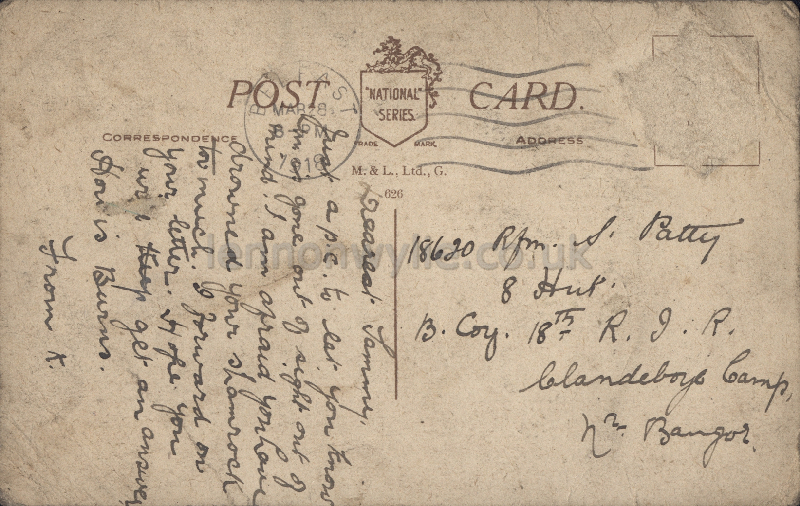 POST CARD.
"NATIONAL"
SERIES
TRADE MARK.
CORRESPONDENCE
ADDRESS
M. & L., Ltd., G.
626
BELFAST
MAR 28
lennonwylie.co.uk
Dearest Sammy,
Just a p.c. to let you know
I'm not gone out of sight out of
mind. I am afraid you have
drowned your shamrock
to much. I forward on
your letter. Hope you
will get an answer
How is Burns.
From K.
18620 Rfm. S. Patty
8 Hut.
B. Coy. 18TH R. I. R.
Clandeboye Camp,
Nr. Bangor.